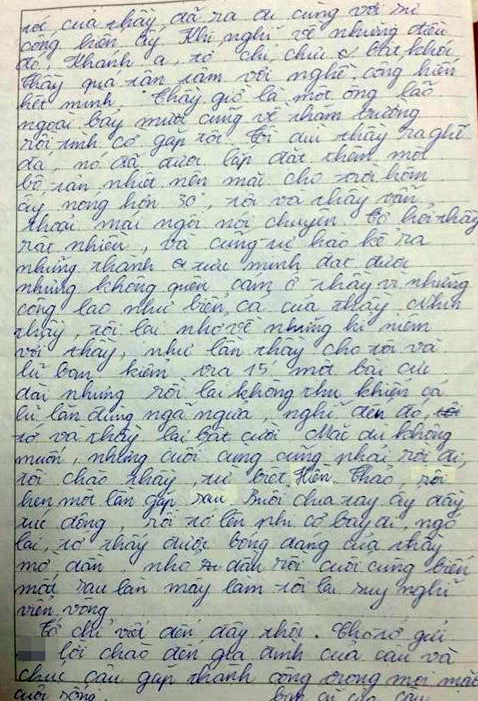 tôi của thầy đã ra đi cùng với sự
cống hiến ấy. Khi nghĩ về những điều
đó, Khanh ạ, tớ chỉ chực oà bật khóc
Thầy quá tận tâm với nghề, cống hiến
hết mình. Thầy giờ là một ông lão
ngoài bảy mươi cũng về thăm trường
rồi tình cờ gặp tôi. Tôi dìu thầy ra ghế
đá, nó đã được lắp đặt thêm một
bộ tản nhiệt nên mặc cho trời hôm
ấy nóng hơn 30°, tôi và thầy vẫn
thoải mái ngồi nói chuyện. Tớ hỏi thầy
rất nhiều, và cũng tự hào kể ra
những thành tựu mình đạt được
nhưng không quên cảm ơ thầy vì những
công lao như biển cả của thầy. Nhìn
thầy, tôi lại nhớ về những kỉ niệm
với thầy, như lần thầy cho tôi và
lũ bạn kiểm tra 15' một bài cực
dài nhưng rồi lại không thu khiến cả
lũ lăn đùng ngã ngửa, nghĩ đến đó,
tớ và thầy lại bật cười. Mặc dù không
muốn, nhưng cuối cùng cũng phải rời đi,
tôi chào thầy, từ biệt Hiền Thảo, rồi
hẹn một lần gặp sau. Buổi chia tay ấy đầy
xúc động, rồi tớ lên phi cơ bay đi, ngó
lại, tớ thấy được bóng dáng của thầy
mờ dần, nhỏ dần rồi cuối cùng biến
mất sau làn mây làm tôi lại suy nghĩ
viển vông
Tớ chỉ viết đến đây thôi. Cho tớ gửi
lời chào đến gia đình của cậu và
chúc cậu gặp thành công trong mọi mặt
cuộc sống. Bạn cũ của cậu